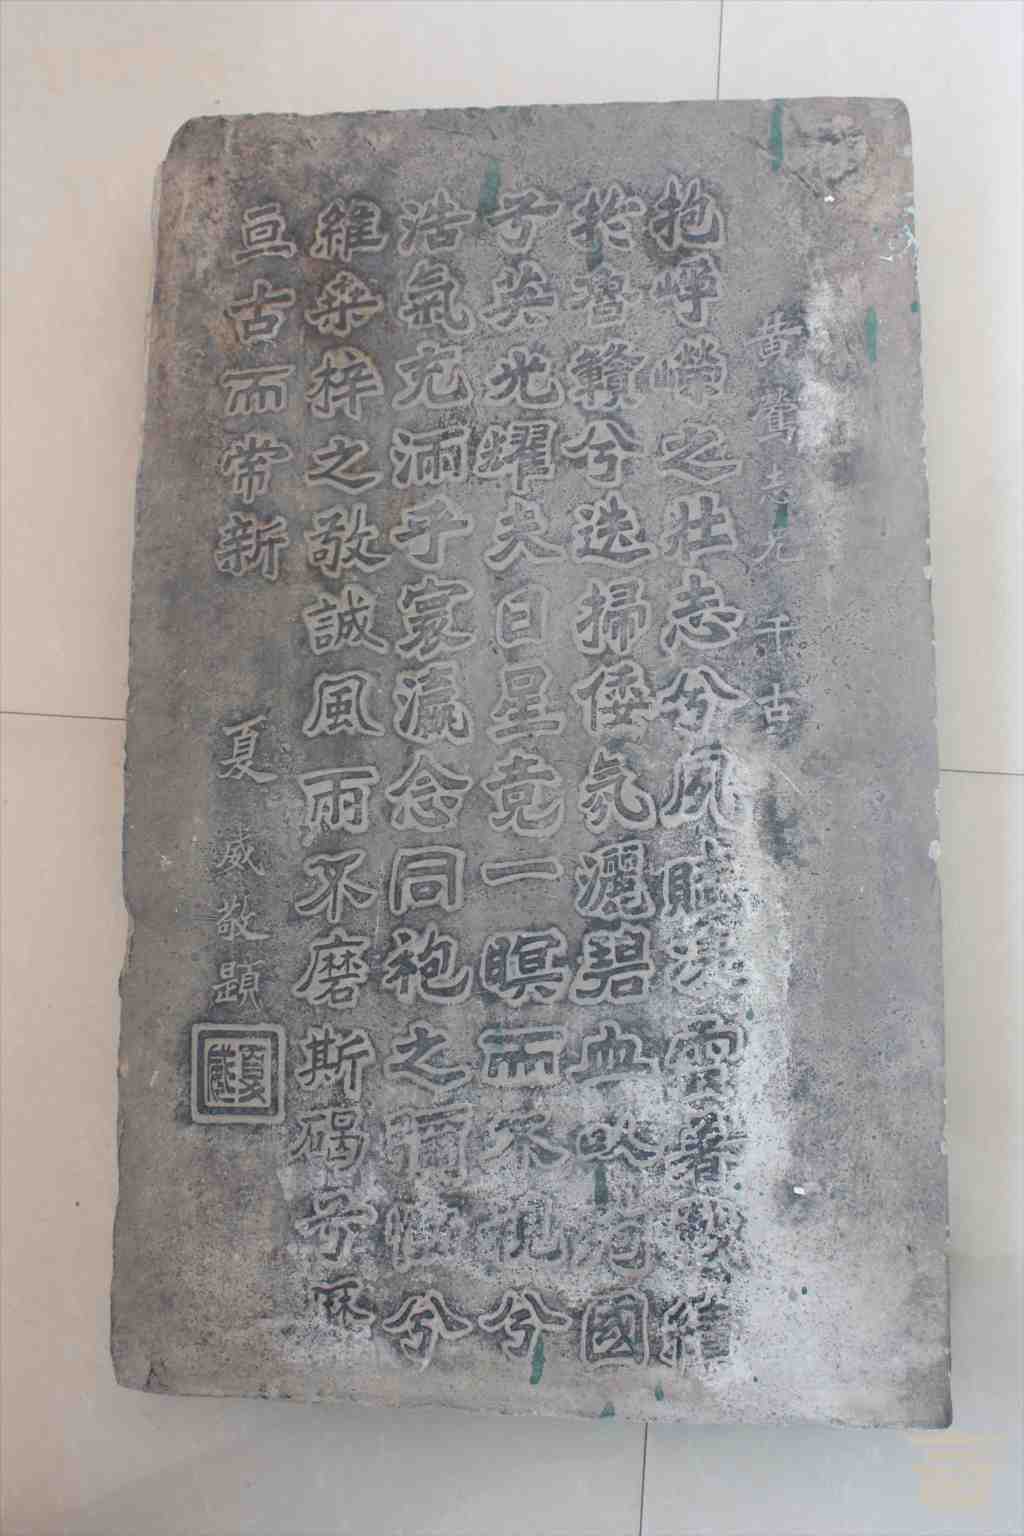 黄鶯志兄 千古
抱崢嶸之壯志兮夙賦凌雲著戰績
於魯贛兮迭掃倭氛灑碧血吹宛國
子英光耀夫日星竟一瞑而不視兮
浩氣充滿乎寰瀛念同袍之彌慟兮
維桑梓之敬誠風雨不磨斯碣兮庥
亘古而常新
夏威敬題
夏威